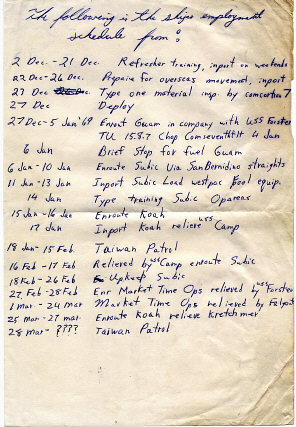 The following is the ships employment
schedule from:
2 Dec. - 21 Dec. Refresher training, inport on weekends
22 Dec - 26 Dec. Prepare for overseas movemat, inport
27 Dec. Type one material insp. by comcortron 7
27 Dec Deploy
27 Dec - 5 Jan '69 Enrout Guam in company with USS Forster
TU 15.8.7 Chop Comseventhflt 4 Jan
6 Jan Brief Stop for fuel Guam
6 Jan - 10 Jan Enroute Subic Via San Bernidino straights
11 Jan - 13 Jan Inport Subic Load westpac pool equip.
14 Jan Type training Subic Opareas
15 Jan - 16 Jan Enroute Koah
17 Jan Inport Koah relieve USS Camp
18 Jan - 15 Feb Taiwan Patrol
16 Feb - 17 Feb Relieved by USS Camp enroute Subic
18 Feb - 26 Feb Upkeep Subic
27 Feb - 28 Feb Enr Market Time Ops relieved by USS Forster
1 Mar - 24 Mar Market Time Ops relieved by Falgout
25 mar - 27 mar Enroute Koah relieve Kretchmer
28 mar - ???? Taiwan Patrol